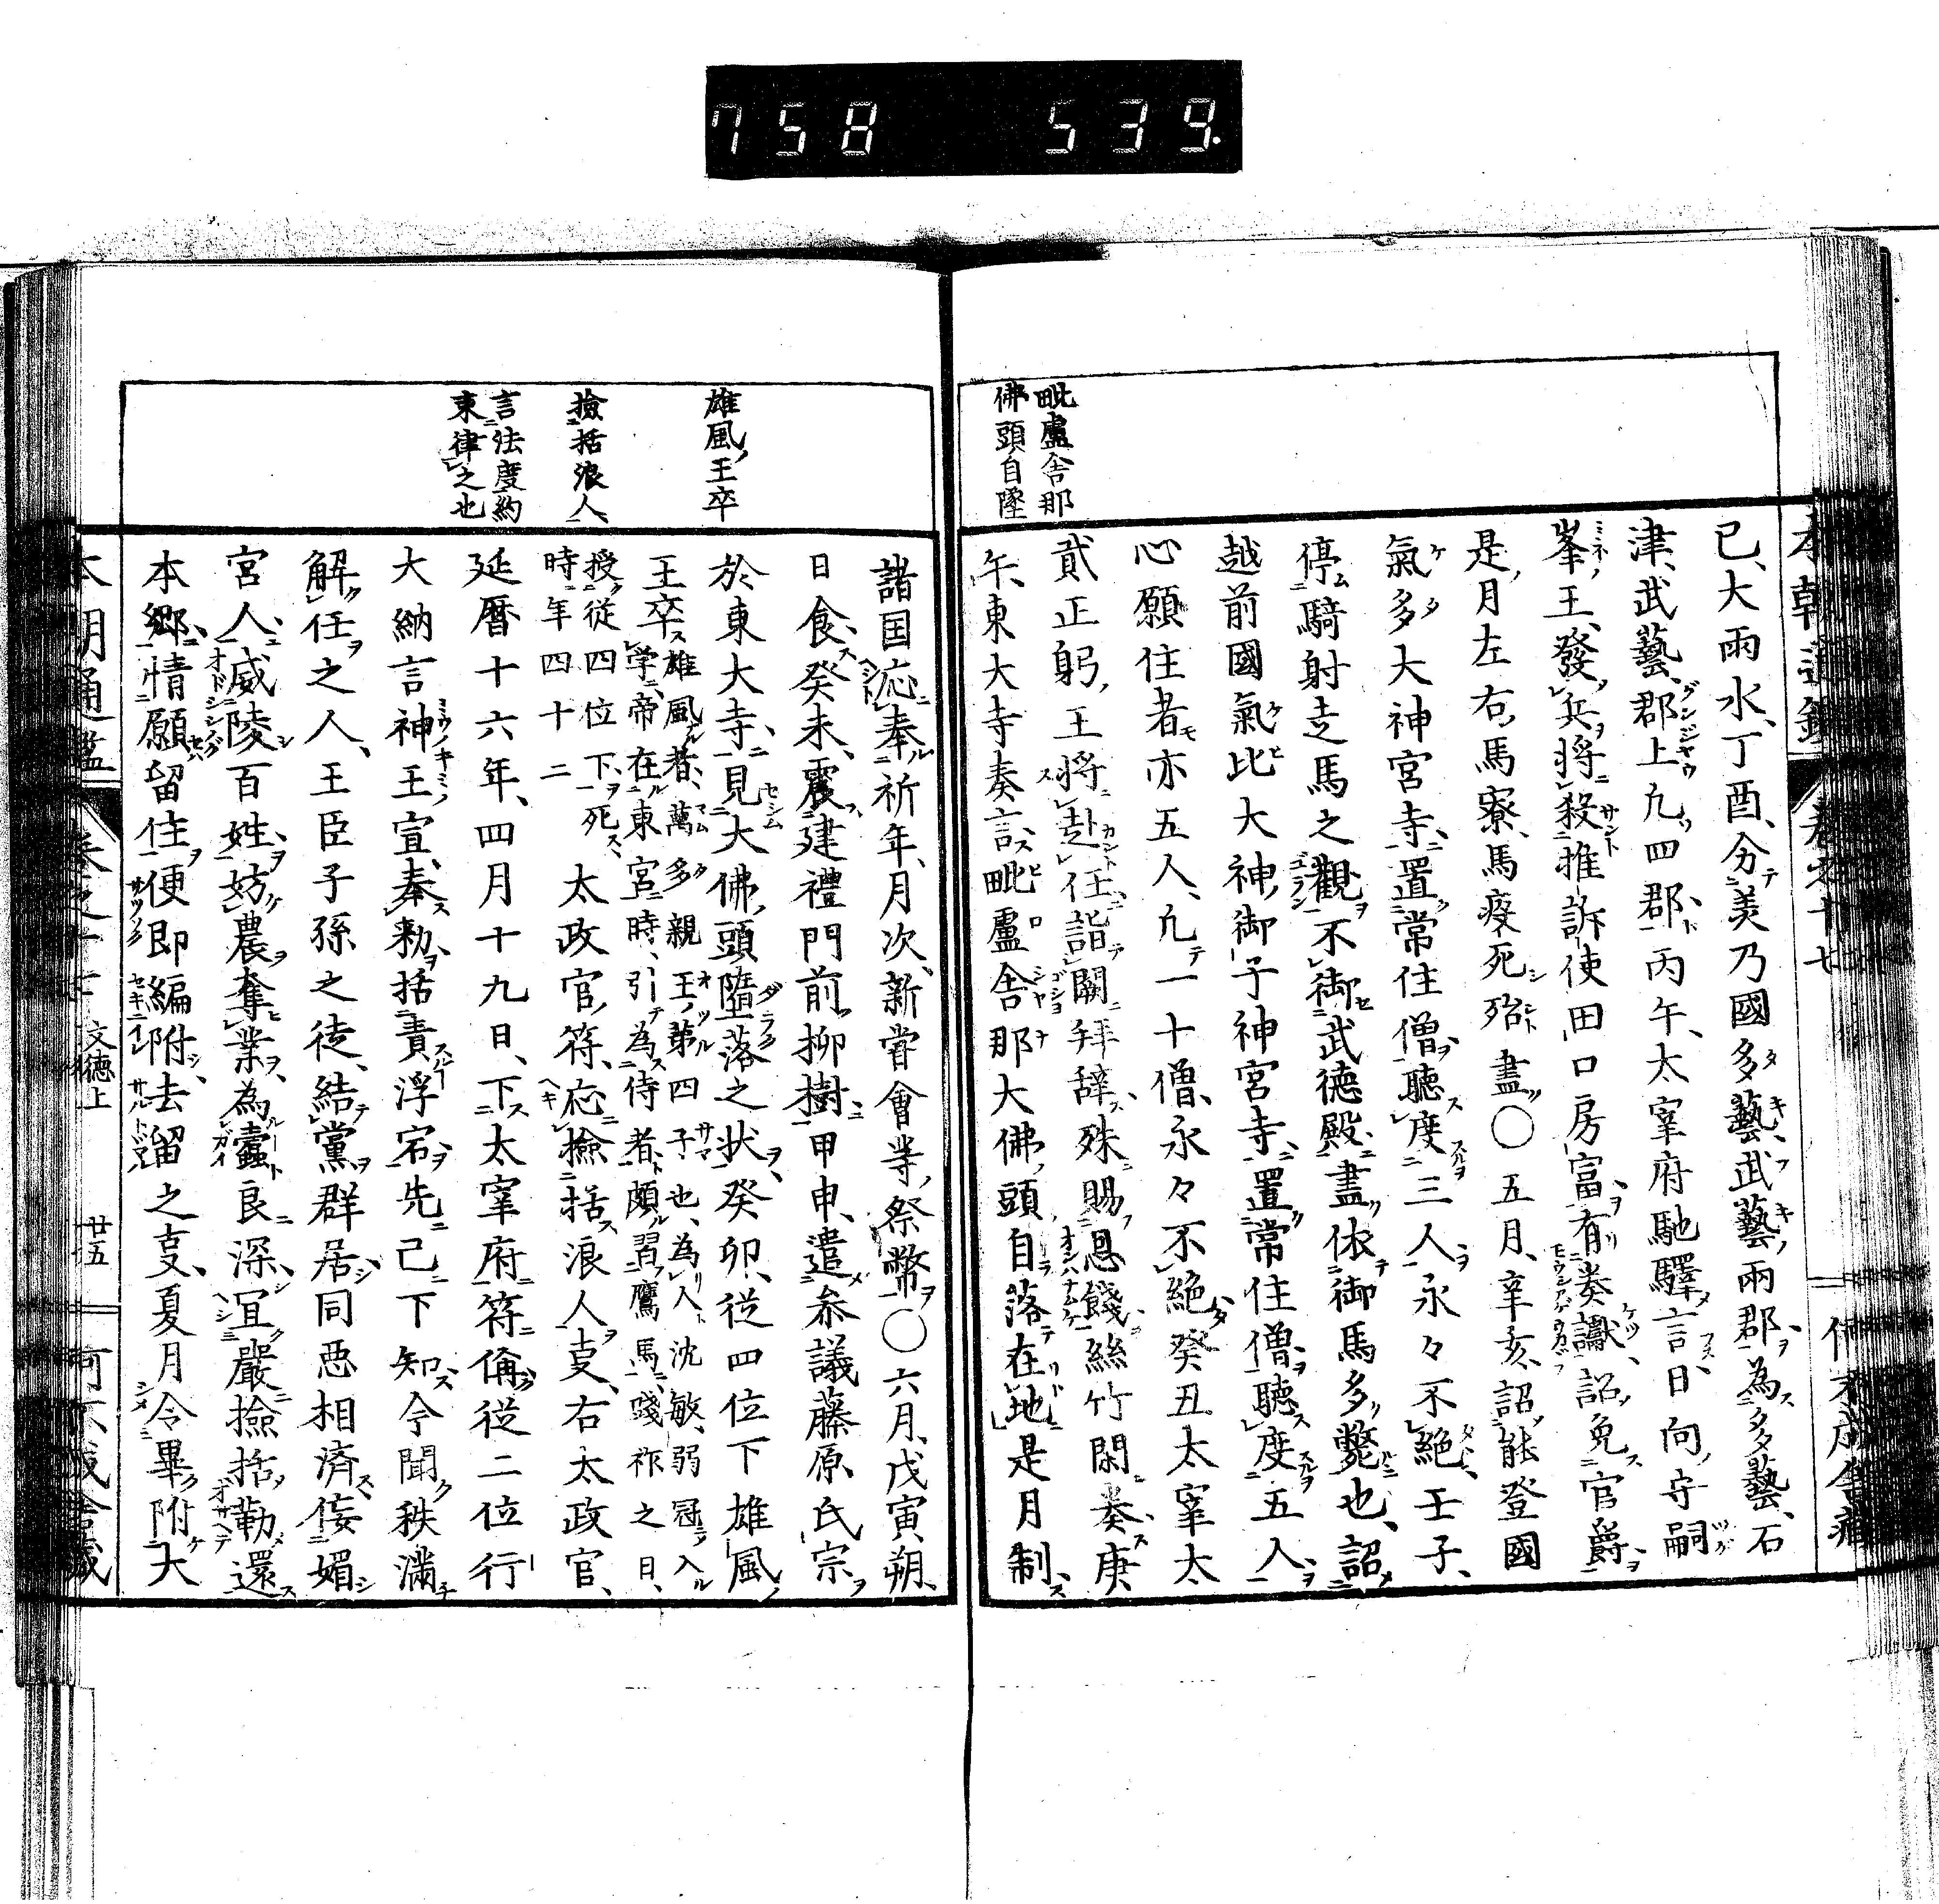 758 539.
毗盧舍那
佛頭自墮
巳、大雨水、丁酉、分美乃國多藝、武藝兩郡、為多藝、石
津、武藝、郡上、凢四郡、丙午、太宰府馳驛言、日向守嗣
峯王、發兵、將殺推訴使田口房富、有奏讞、詔免官爵
是月左右馬寮、馬疫死殆盡○五月、辛亥、詔能登國
氣多大神宮寺、置常住僧、聽度三人、永々不絕、壬子、
停騎射走馬之觀、不御武德殿、盡依御馬多斃也、詔
越前國氣比大神、御子神宮寺、置常住僧、聽度五人、
心願住者亦五人、凢一十僧、永々不絕、癸丑太宰太
貳正躬王將赴任、詣闕拜辞、殊賜恩餞、絲竹閒奏、庚
午、東大寺奏言、毗盧舍那大佛頭自落在地、是月制
諸国応奉祈年、月次、新甞會等祭幣○六月、戊寅朔、
日食、癸未、震建禮門前柳樹、甲申、遣叅議藤原氏宗
於東大寺、見大佛頭墮落之狀、癸卯、從四位下雄風
王卒雄風者、萬多親王第四子也、為人沈敏、弱冠入
学、帝在東宮時、引為侍者、頗習鷹馬、踐祚之日、
授從四位下、死
時年四十二
太政官符、応撿括浪人㕝、右太政官、
延曆十六年、四月十九日、下太宰府符偁、從二位行
大納言神王宣、奉勑、括責浮宕、先己下知、今聞秩滿
解任之人、王臣子孫之徒、結黨群居、同悪相済、侫媚
宮人、威陵百姓、妨農奪業、為蠹良深、宜嚴撿括、勒還
本郷、情願留住、便即編附、去留之㕝、夏月令畢、附大
雄風王卒
撿括浪人
言法度約
束律之也
本朝通鑑 卷之十七 文德上 廿五